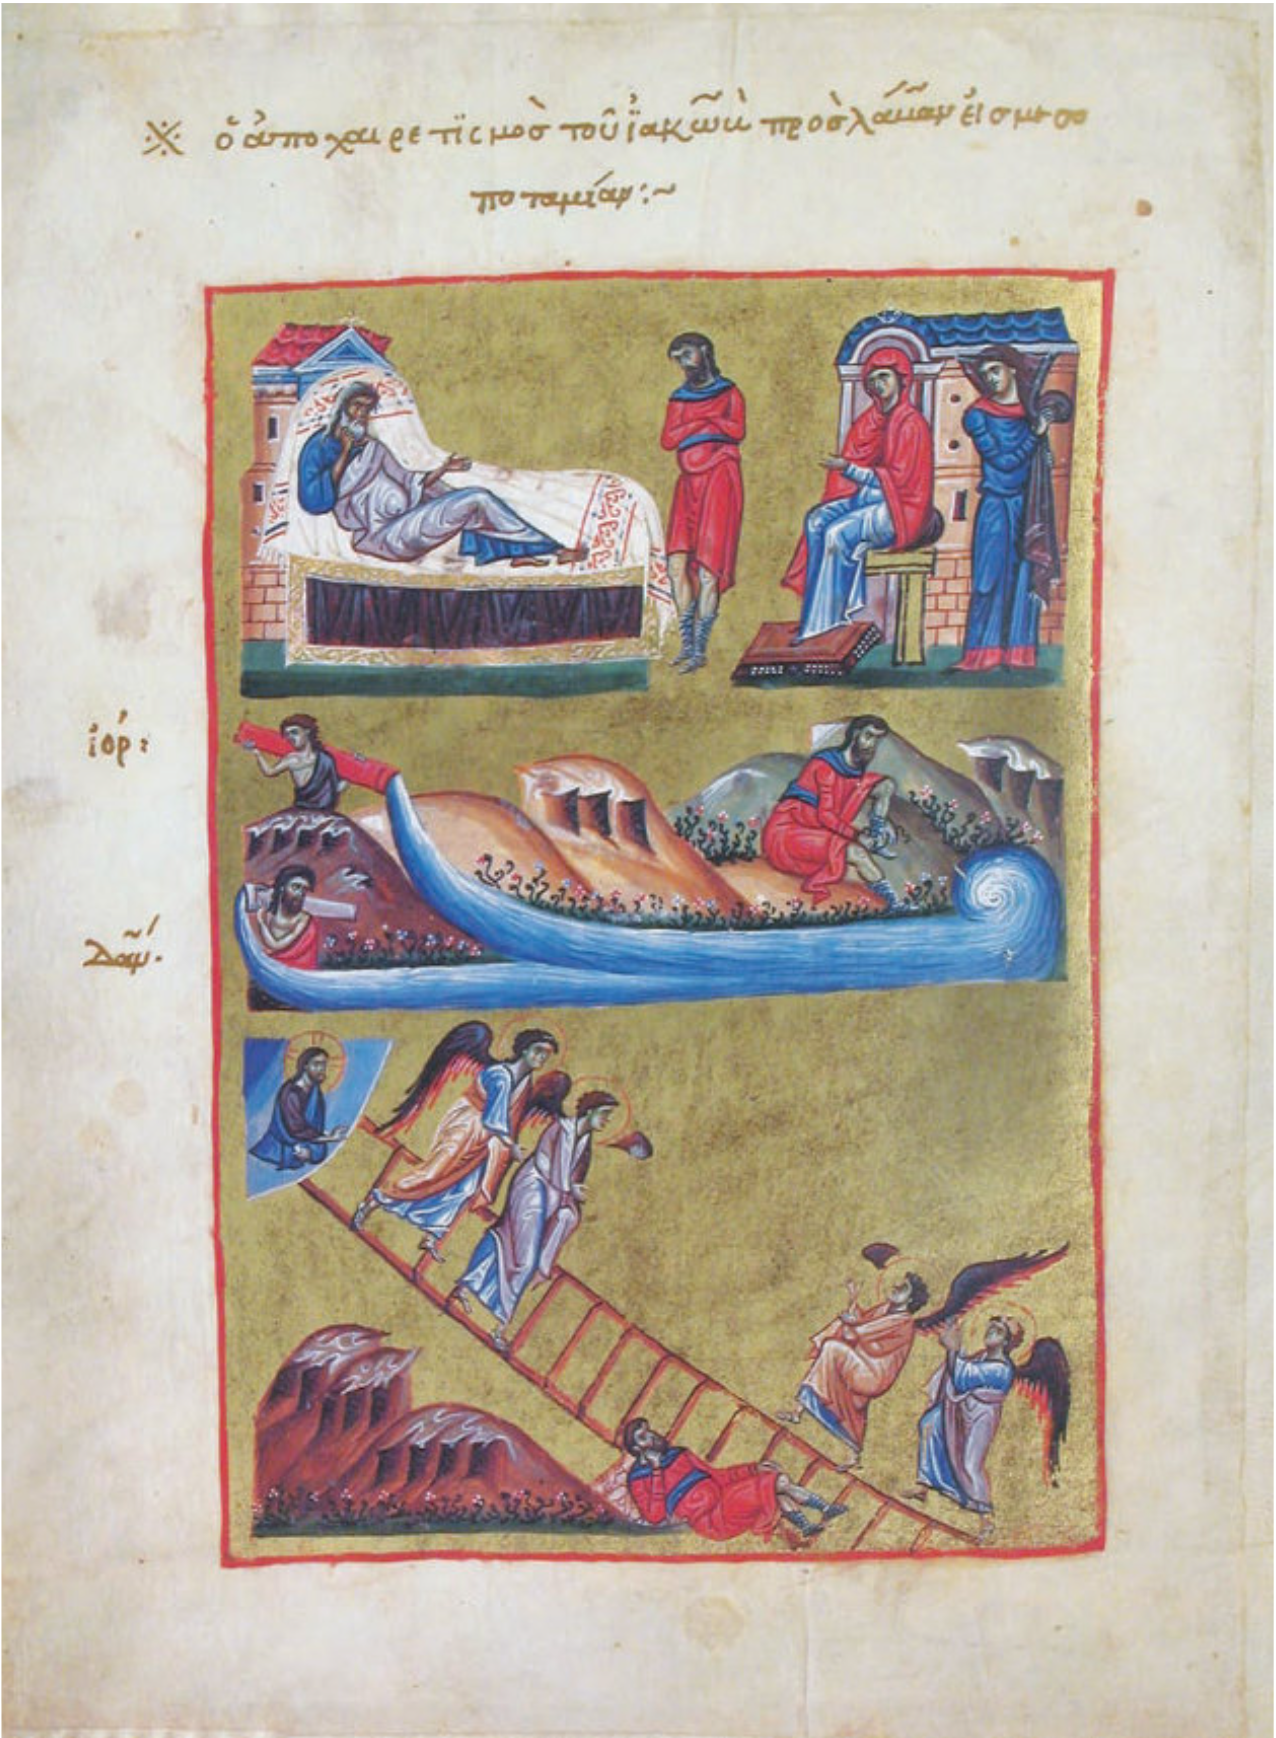 ※ ὁ ἀποχαιρετϊσμὸσ τοῦ ϊακὼβ πρὸσ λάβαν εἰσ μεσο
ποταμίαν:~
ἰόρ:
δάν.